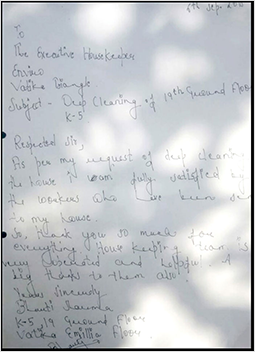 8th Sep. 20
To
The Executive Housekeeper
Enviro
Vatika Triangle
Subject - Deep Cleaning of 19th Ground Floor
K-5
Respected Sir,
As per my request of deep cleaning
the house i am fully satisfied by
the workers who have been
to my house.
So, thank you so much for
everything. House keeping team is
very and helpful. A
big thanks to them also!
Yours Sincerely
Sharma
K-5/19 Ground Floor
Vatika Emillia Floor